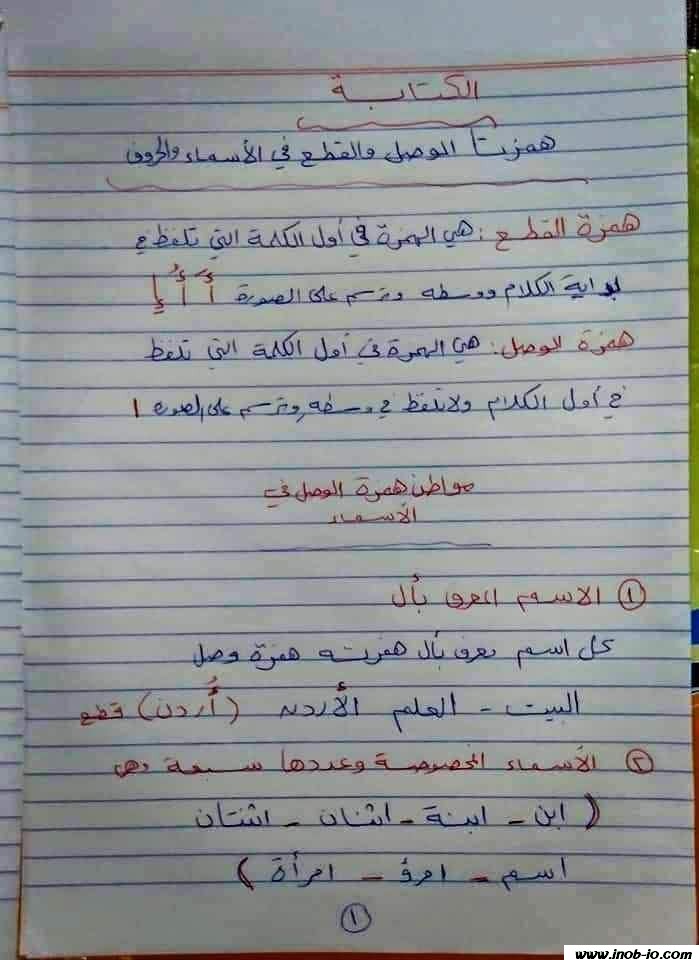 الكتابة
همزتا الوصل والقطع في الأسماء والحروف
همزة القطع : هي الهمزة في أول الكلمة التي تلفظ في
بداية الكلام ووسطه وترسم على الصورة أَ أُ إِ
همزة الوصل : هي الهمزة في أول الكلمة التي تلفظ
في أول الكلام ولا تلفظ في وسطه وترسم على الصورة ا
مواطن همزة الوصل في
الأسماء
① الاسم المعرف بأل
كل اسم معرف بأل همزته همزة وصل
البيت - العلم الأردن (أُردن) قطع
② الأسماء المخصوصة وعددها سبعة وهي
( ابن - ابنة - اثنان - اثنتان
اسم - امرؤ - امرأة )
①
www.inob-io.com